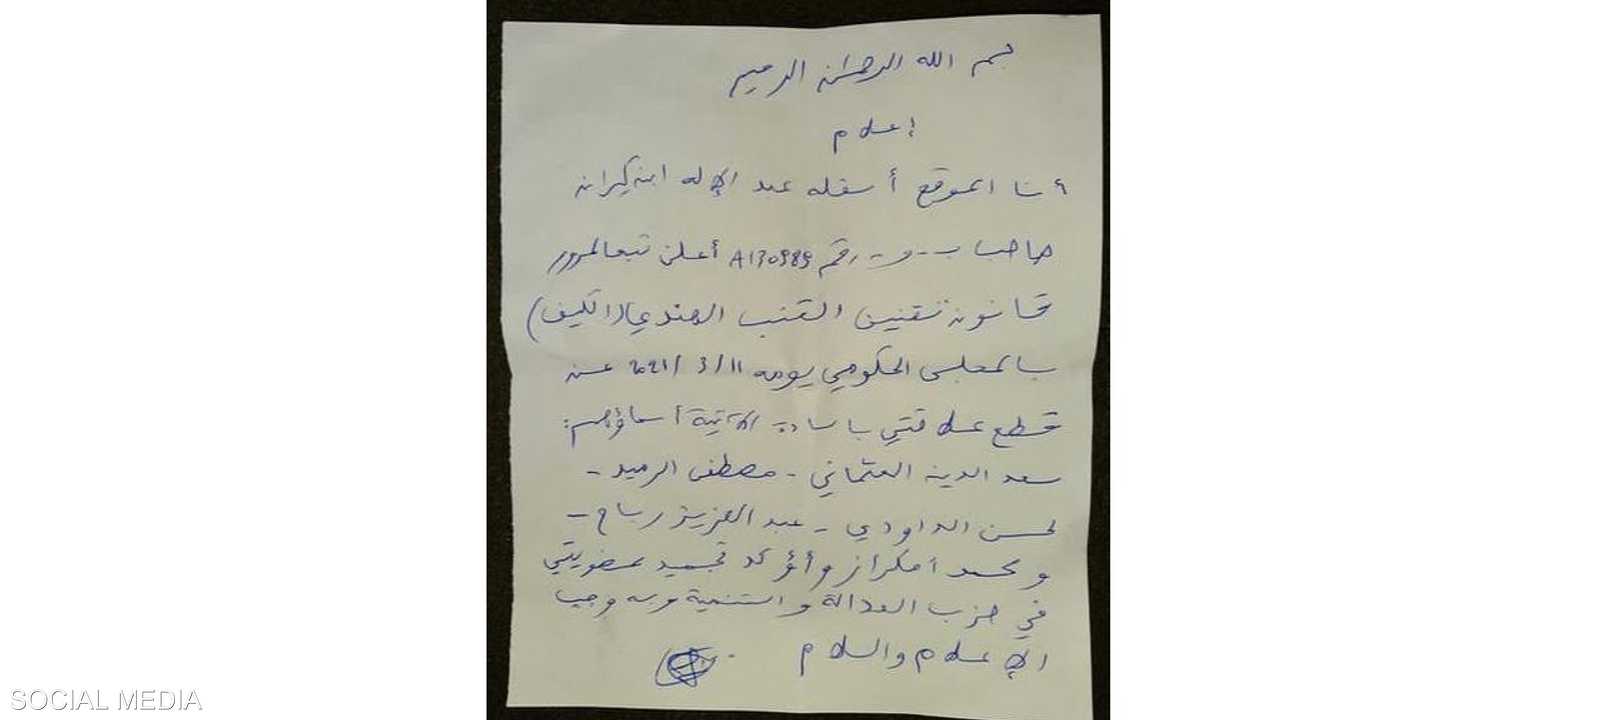 بسم الله الرحمان الرحيم
إعلام
أنا الموقع أسفله عبد الإله ابن كيران
صاحب ب.و. رقم A130989 أعلن تبعا لمرور
قانون تقنين القنب الهندي (الكيف)
بالمجلس الحكومي يومه 11/3/2021 عن
قطع علاقتي بالسادة الآتية أسماؤهم:
سعد الدين العثماني - مصطفى الرميد -
لحسن الداودي - عبد العزيز رباح -
ومحمد أمكراز وأؤكد تجميد عضويتي
في حزب العدالة والتنمية وبه وجب
الإعلام والسلام
SOCIAL MEDIA